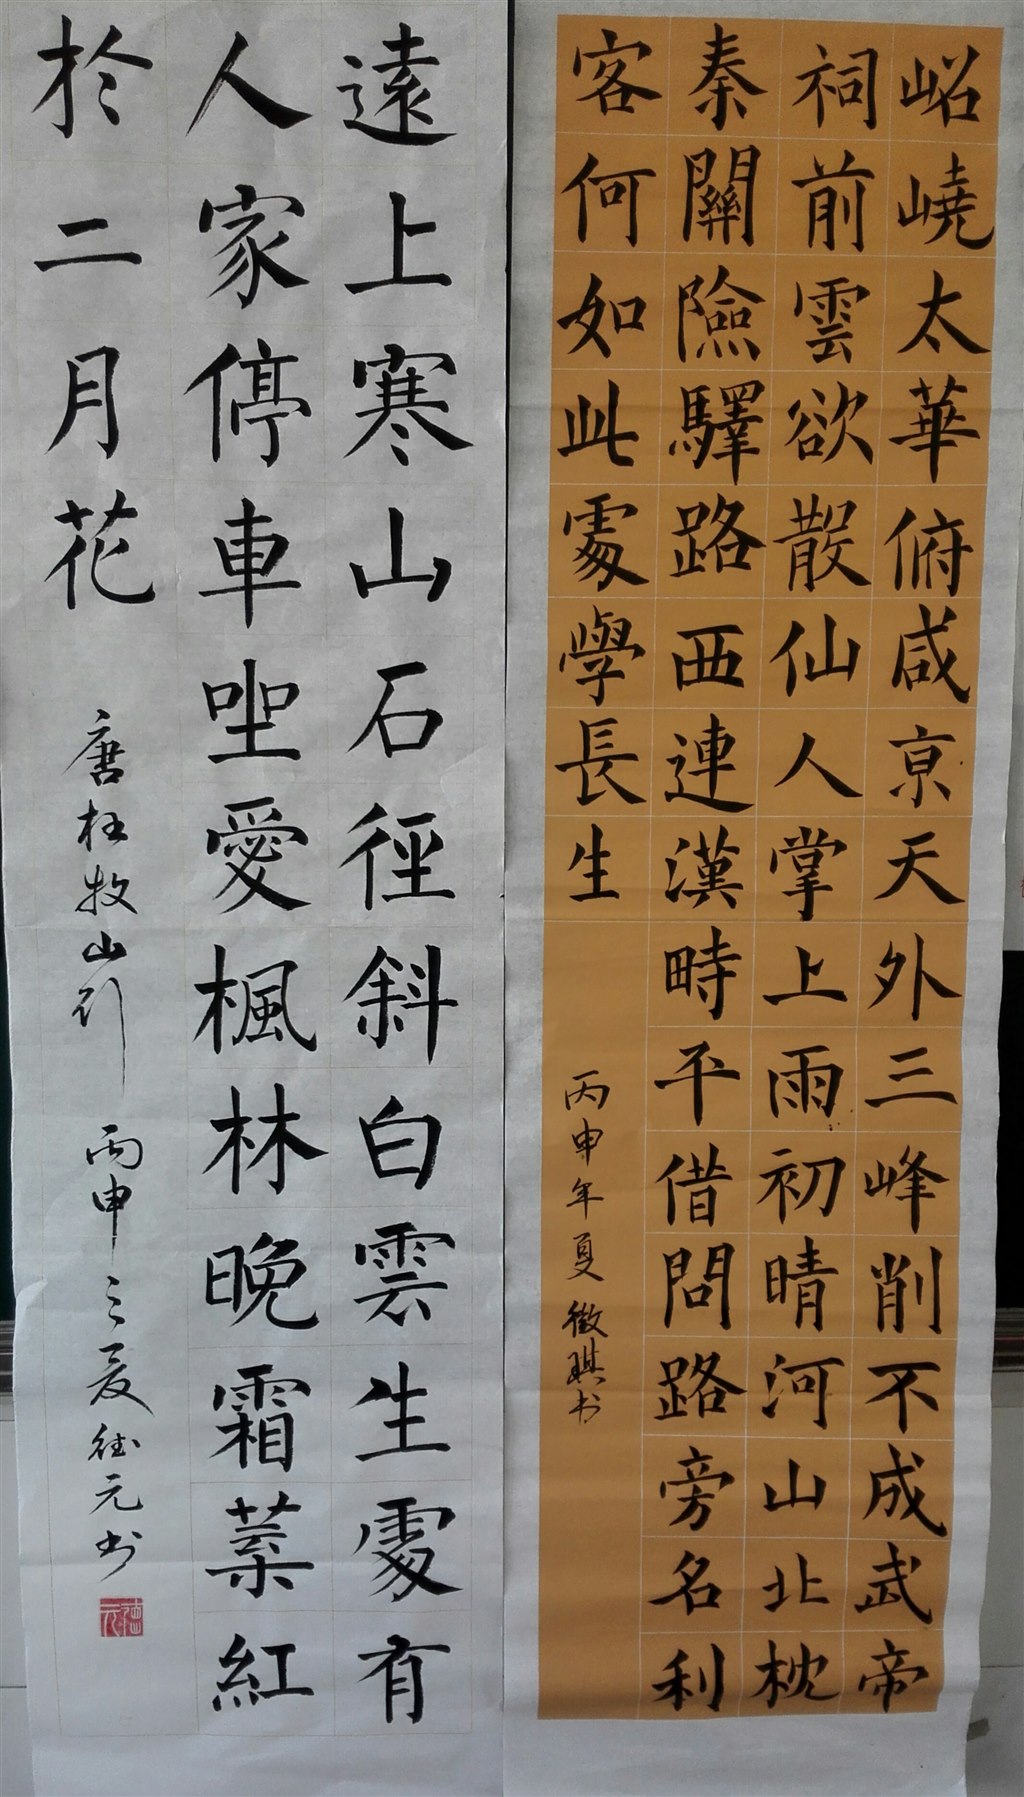 岧嶢太華俯咸京天外三峰削不成武帝
祠前雲欲散仙人掌上雨初晴河山北枕
秦關險驛路西連漢畤平借問路旁名利
客何如此處學長生
丙申年夏徵騏书
遠上寒山石徑斜白雲生處有
人家停車坐愛楓林晚霜葉紅
於二月花
唐杜牧山行
丙申之夏德元书
德元